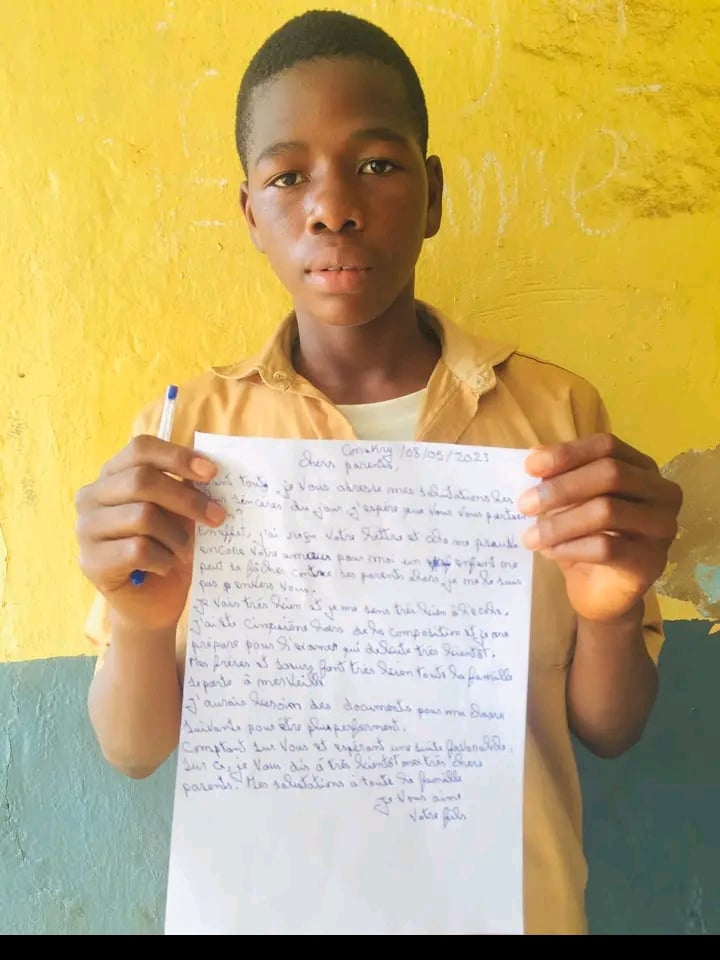 Conakry /08/05/2023
Chers parents,
Avant toute, je vous adresse mes salutations les
plus sincères du jour, j'espère que vous vous portez
En effet, j'ai reçu votre lettre et cela me prouve
encore votre amour pour moi un enfant ne
peut se fâcher contre ses parents alors je me le suis
pas envers vous.
Je vais très bien et je me sens très bien à l'école.
J'ai été cinquième lors de la composition et je me
prépare pour l'examen qui débute très bientôt.
Mes frères et soeurs font très bien toute la famille
se porte à merveille
J'aurais besoin des documents pour ma classe
suivante pour être plus performent.
Comptant sur vous et espérant une suite favorable,
Sur ce, je vous dis à très bientôt mes très chers
parents. Mes salutations à toute la famille
je vous aime
Votre fils